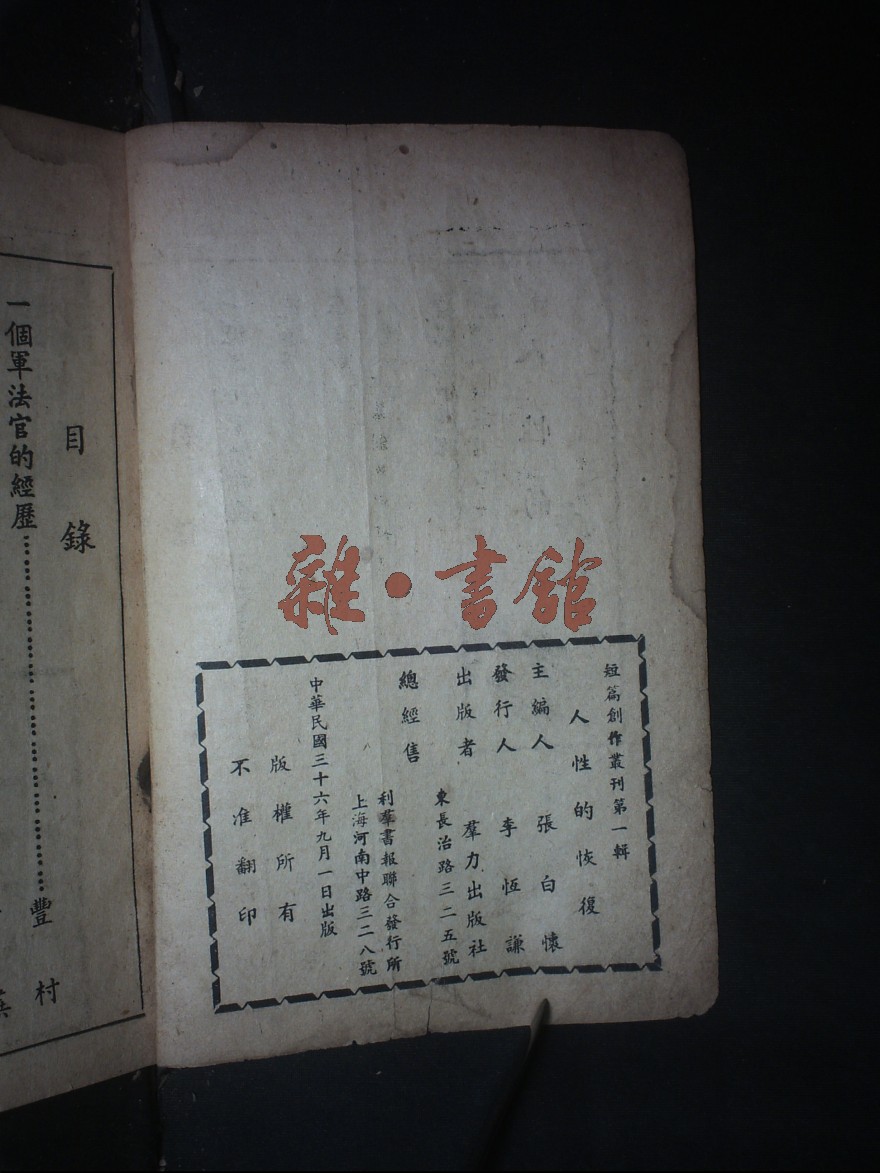 雜·書館
短篇創作叢刊第一輯
人性的恢復
主編人 張白懷
發行人 李恆謙
出版者 羣力出版社
東長治路三二五號
總經售
利羣書報聯合發行所
上海河南中路三二八號
中華民國三十六年九月一日出版
版權所有
不准翻印
目錄
一個軍法官的經歷……………………豐村